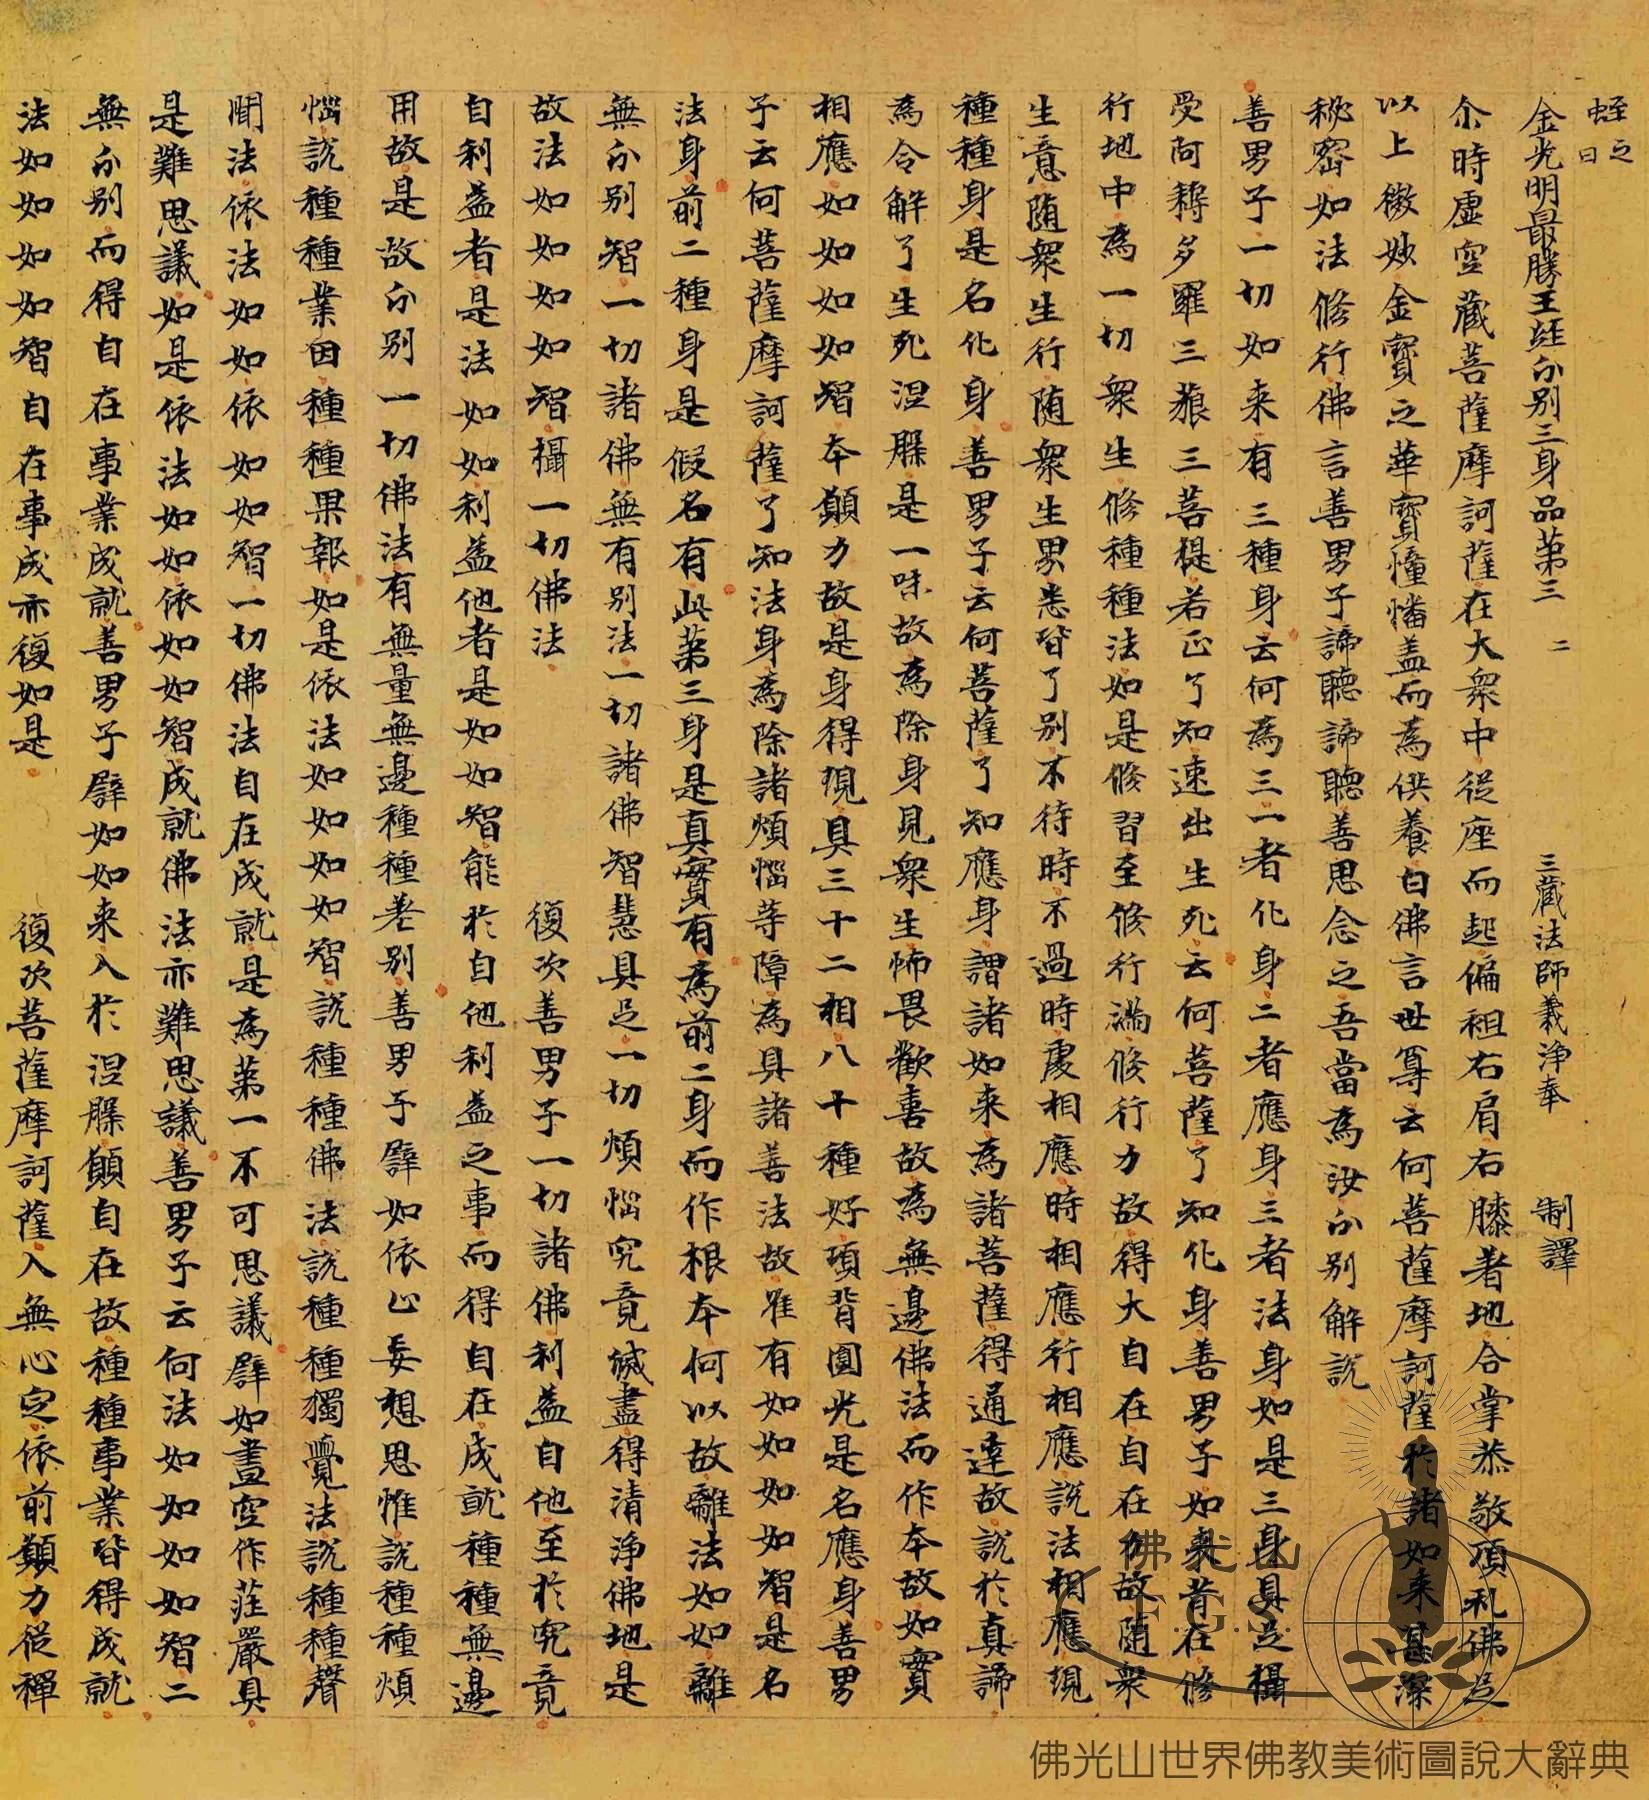 蛭 之日
金光明最勝王經分別三身品第三 二 三藏法師義淨奉 制譯
尒時虛空藏菩薩摩訶薩在大衆中從座而起偏袒右肩右膝著地合掌恭敬頂礼佛足
以上微妙金寶之華寶幢幡盖而為供養白佛言世尊云何菩薩摩訶薩於諸如来甚深
秘密如法修行佛言善男子諦聽諦聽善思念之吾當為汝分別解說
善男子一切如来有三種身云何為三一者化身二者應身三者法身如是三身具足攝
受阿耨多羅三藐三菩提若正了知速出生死云何菩薩了知化身善男子如来昔在修
行地中為一切衆生修種種法如是修習至修行滿修行力故得大自在自在力故随衆
生意随衆生行随衆生界悉皆了別不待時不過時處相應時相應行相應說法相應現
種種身是名化身善男子云何菩薩了知應身謂諸如来為諸菩薩得通達故說於真諦
為令解了生死涅槃是一味故為除身見衆生怖畏歡喜故為無邊佛法而作本故如實
相應如如如如智本願力故是身得現具三十二相八十種好項背圓光是名應身善男
子云何菩薩摩訶薩了知法身為除諸煩惱等障為具諸善法故唯有如如如如智是名
法身前二種身是假名有此第三身是真實有為前二身而作根本何以故離法如如離
無分別智一切諸佛無有別法一切諸佛智慧具足一切煩惱究竟滅盡得清淨佛地是
故法如如如如智攝一切佛法 復次善男子一切諸佛利益自他至於究竟
自利益者是法如如利益他者是如如智能於自他利益之事而得自在成就種種無邊
用故是故分別一切佛法有無量無邊種種差別善男子譬如依止妄想思惟說種種煩
惱說種種業因種種果報如是依法如如如如智說種種佛法說種種獨覺法說種種聲
聞法依法如如依如如智一切佛法自在成就是為第一不可思議譬如畫空作莊嚴具
是難思議如是依法如如依如如智成就佛法亦難思議善男子云何法如如如如智二
無分別而得自在事業成就善男子譬如如来入於涅槃願自在故種種事業皆得成就
法如如如如智自在事成亦復如是 復次菩薩摩訶薩入無心定依前願力從禪
佛光山
F.G.S.
佛光山世界佛教美術圖說大辭典